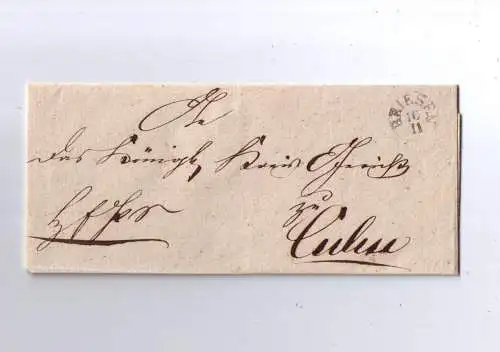 BRIESEN
16
11
An
das Königl. Kreis Gericht
zu
Culm